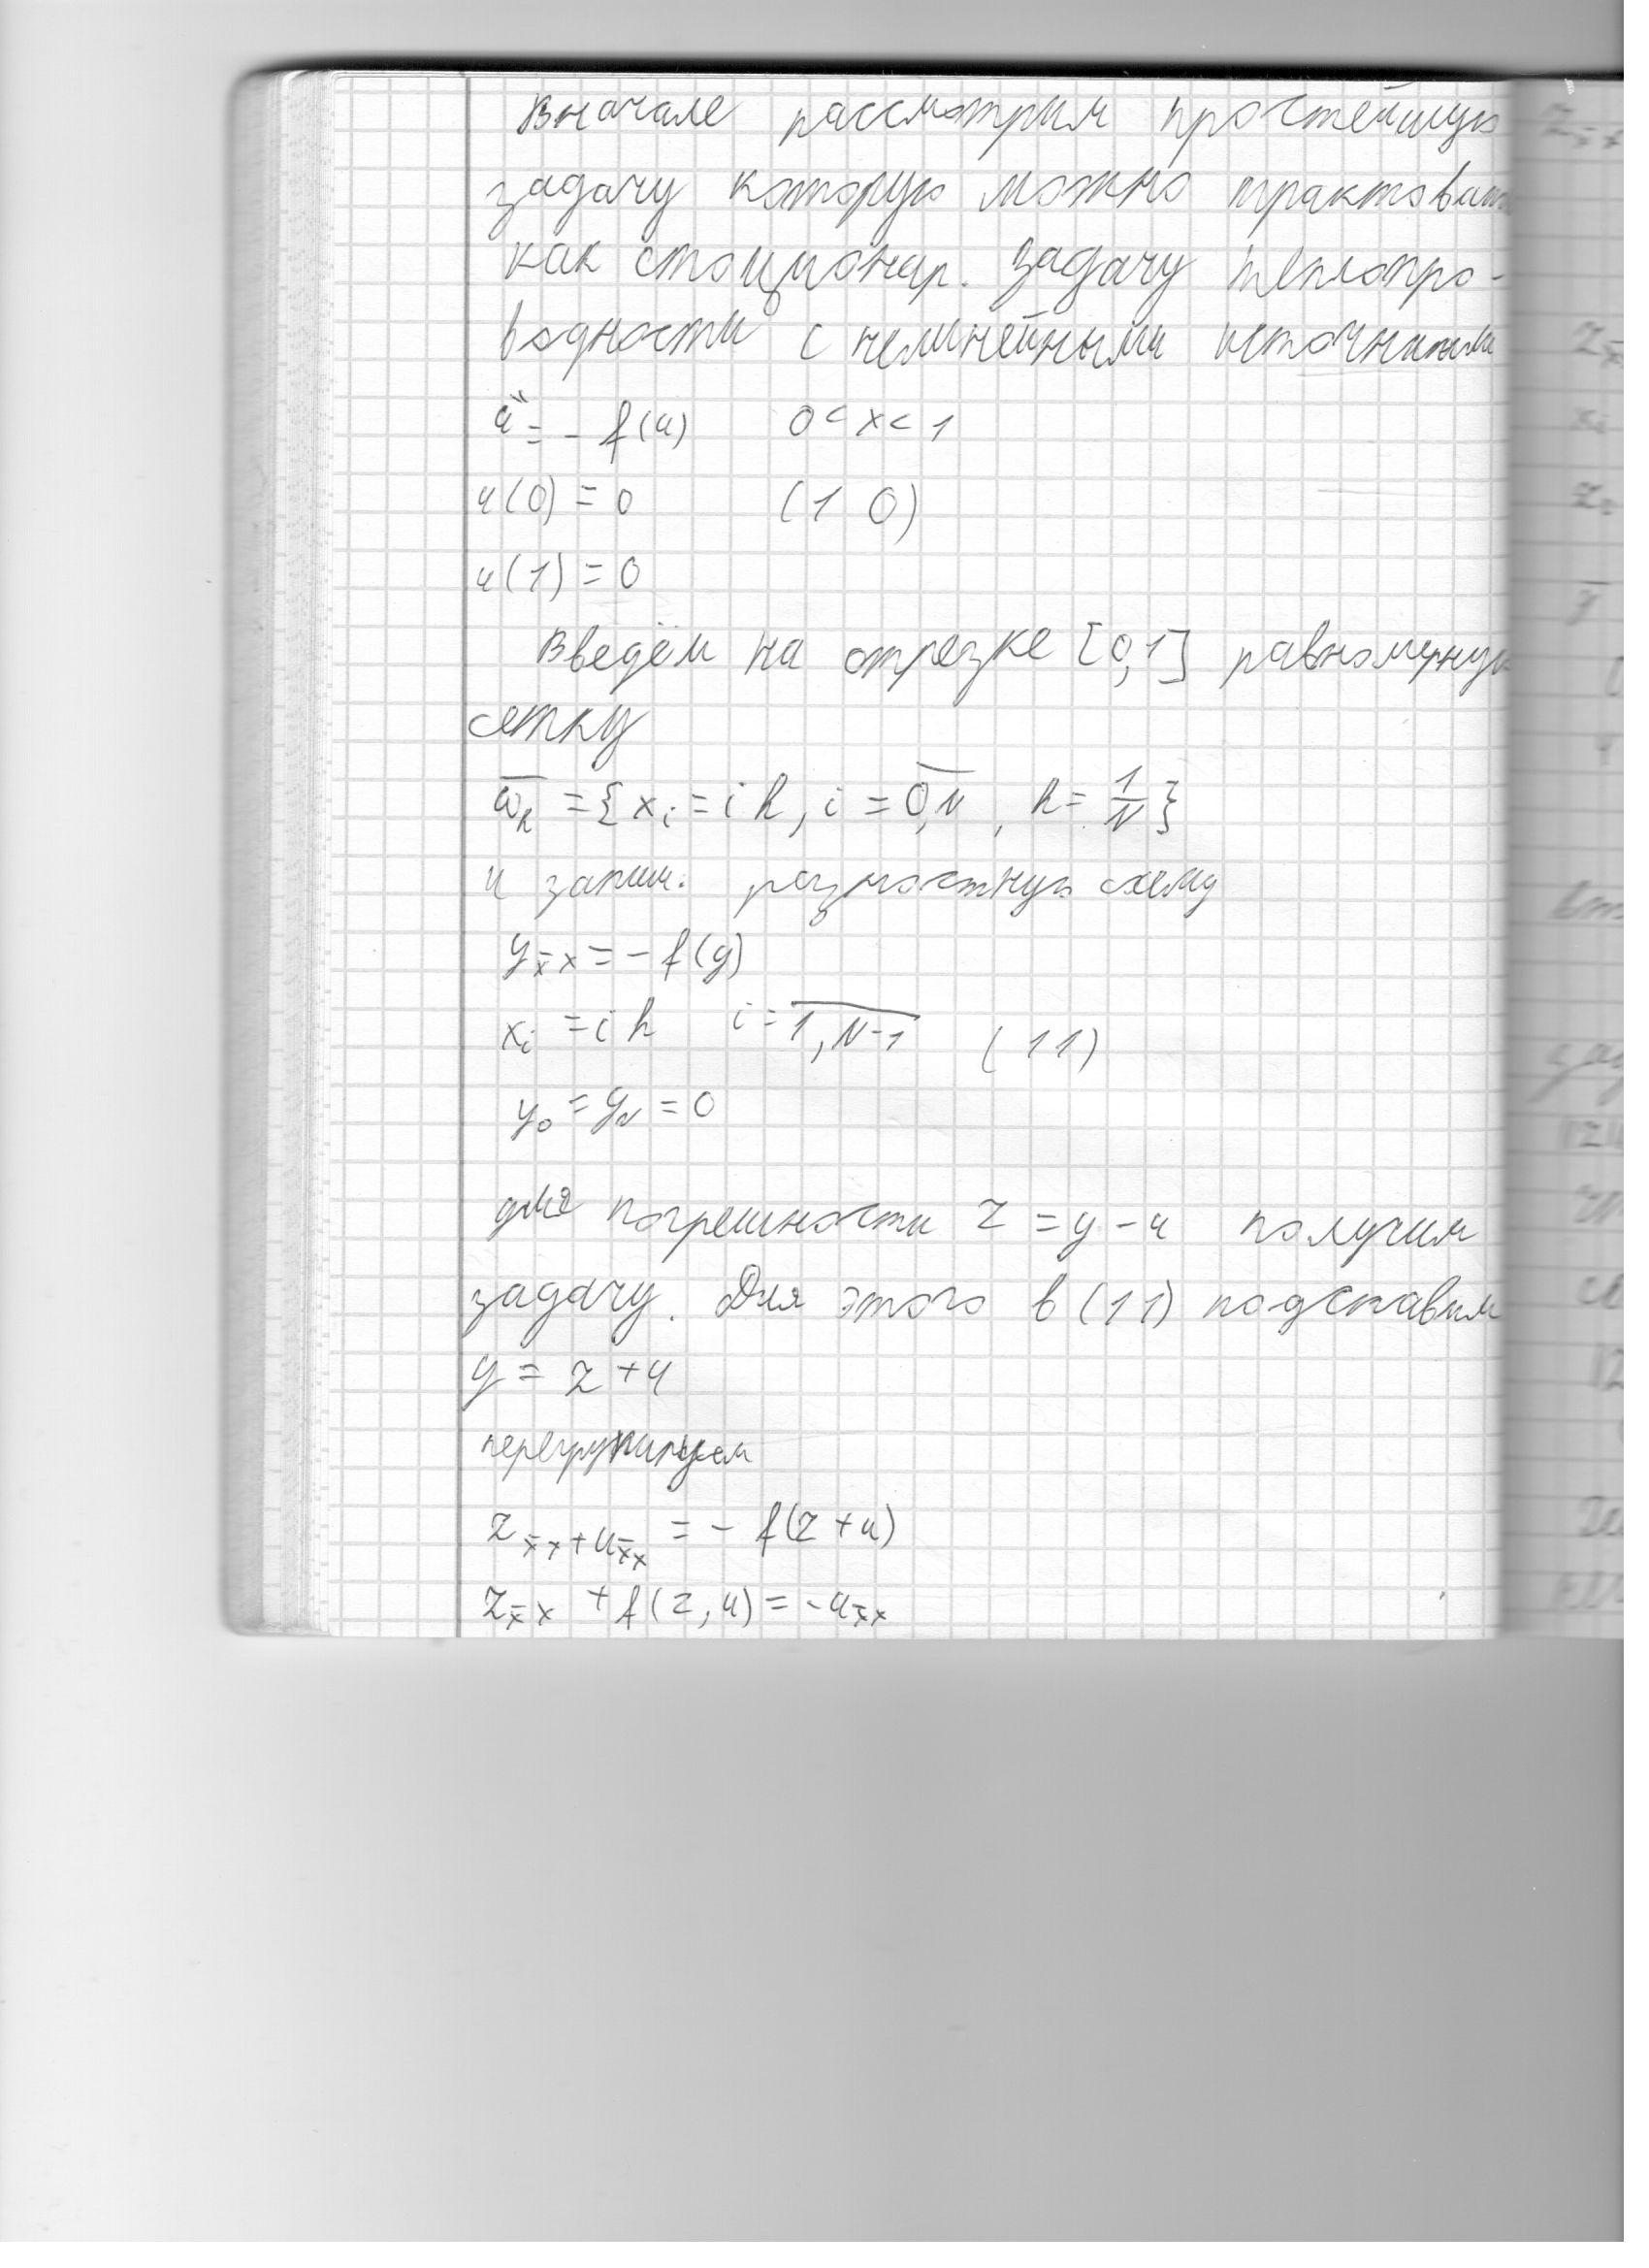 Вначале рассмотрим простейшую
задачу которую можно трактовать
как стационар. задачу теплопро-
водности с нелинейными источниками
u'' = - f(u) 0 < x < 1
u(0) = 0 (10)
u(1) = 0
Введём на отрезке [0,1] равномерную
сетку
ω̅ₕ = {xᵢ = i h, i = 0,N̅, h = 1/N}
и запиш. разностную схему
y_x̅x = - f(y)
xᵢ = i h i = 1,N-1 (11)
y₀ = y_N = 0
для погрешности z = y - u получим
задачу. Для этого в (11) подставим
y = z + u
перегруппируем
z_x̅x + u_x̅x = - f(z + u)
z_x̅x + f(z, u) = - u_x̅x